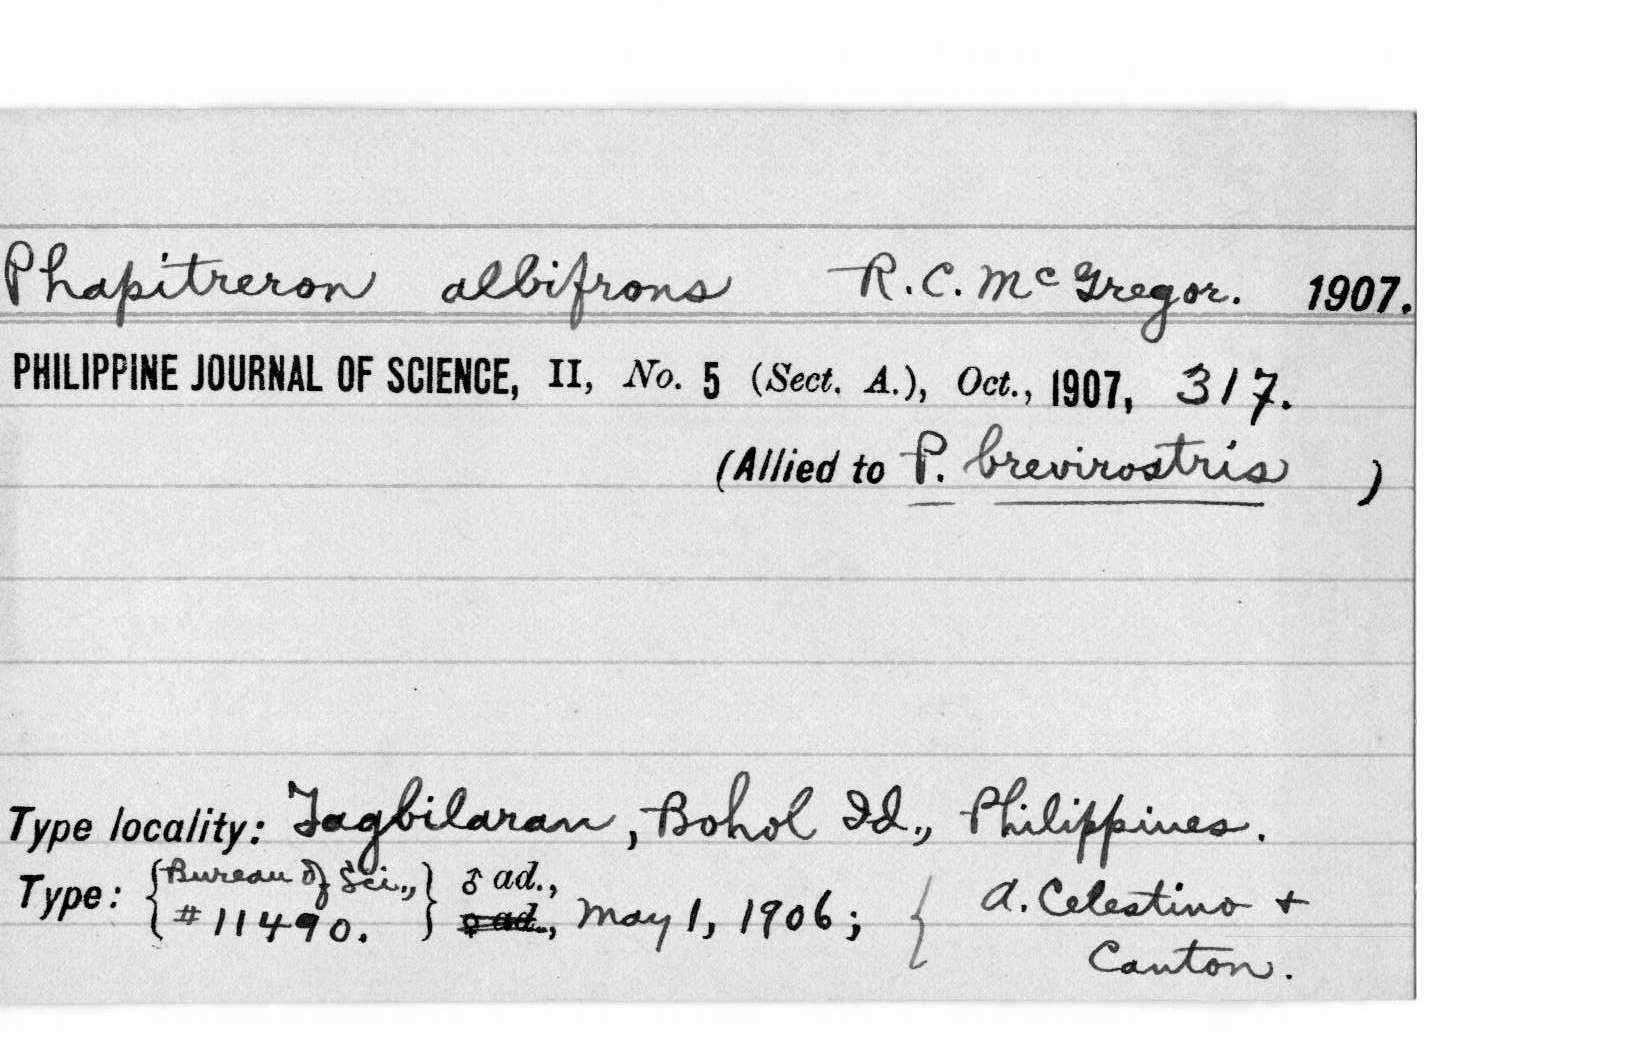 Phapitreron albifrons R.C. McGregor. 1907.
PHILIPPINE JOURNAL OF SCIENCE, II, No. 5 (Sect. A.), Oct., 1907, 317.
(Allied to P. brevirostris )
Type locality: Tagbilaran, Bohol Id., Philippines.
Type: {Bureau of Sci., #11490.} ♂ ad., ♀ ad., May 1, 1906; { A. Celestino + Canton.